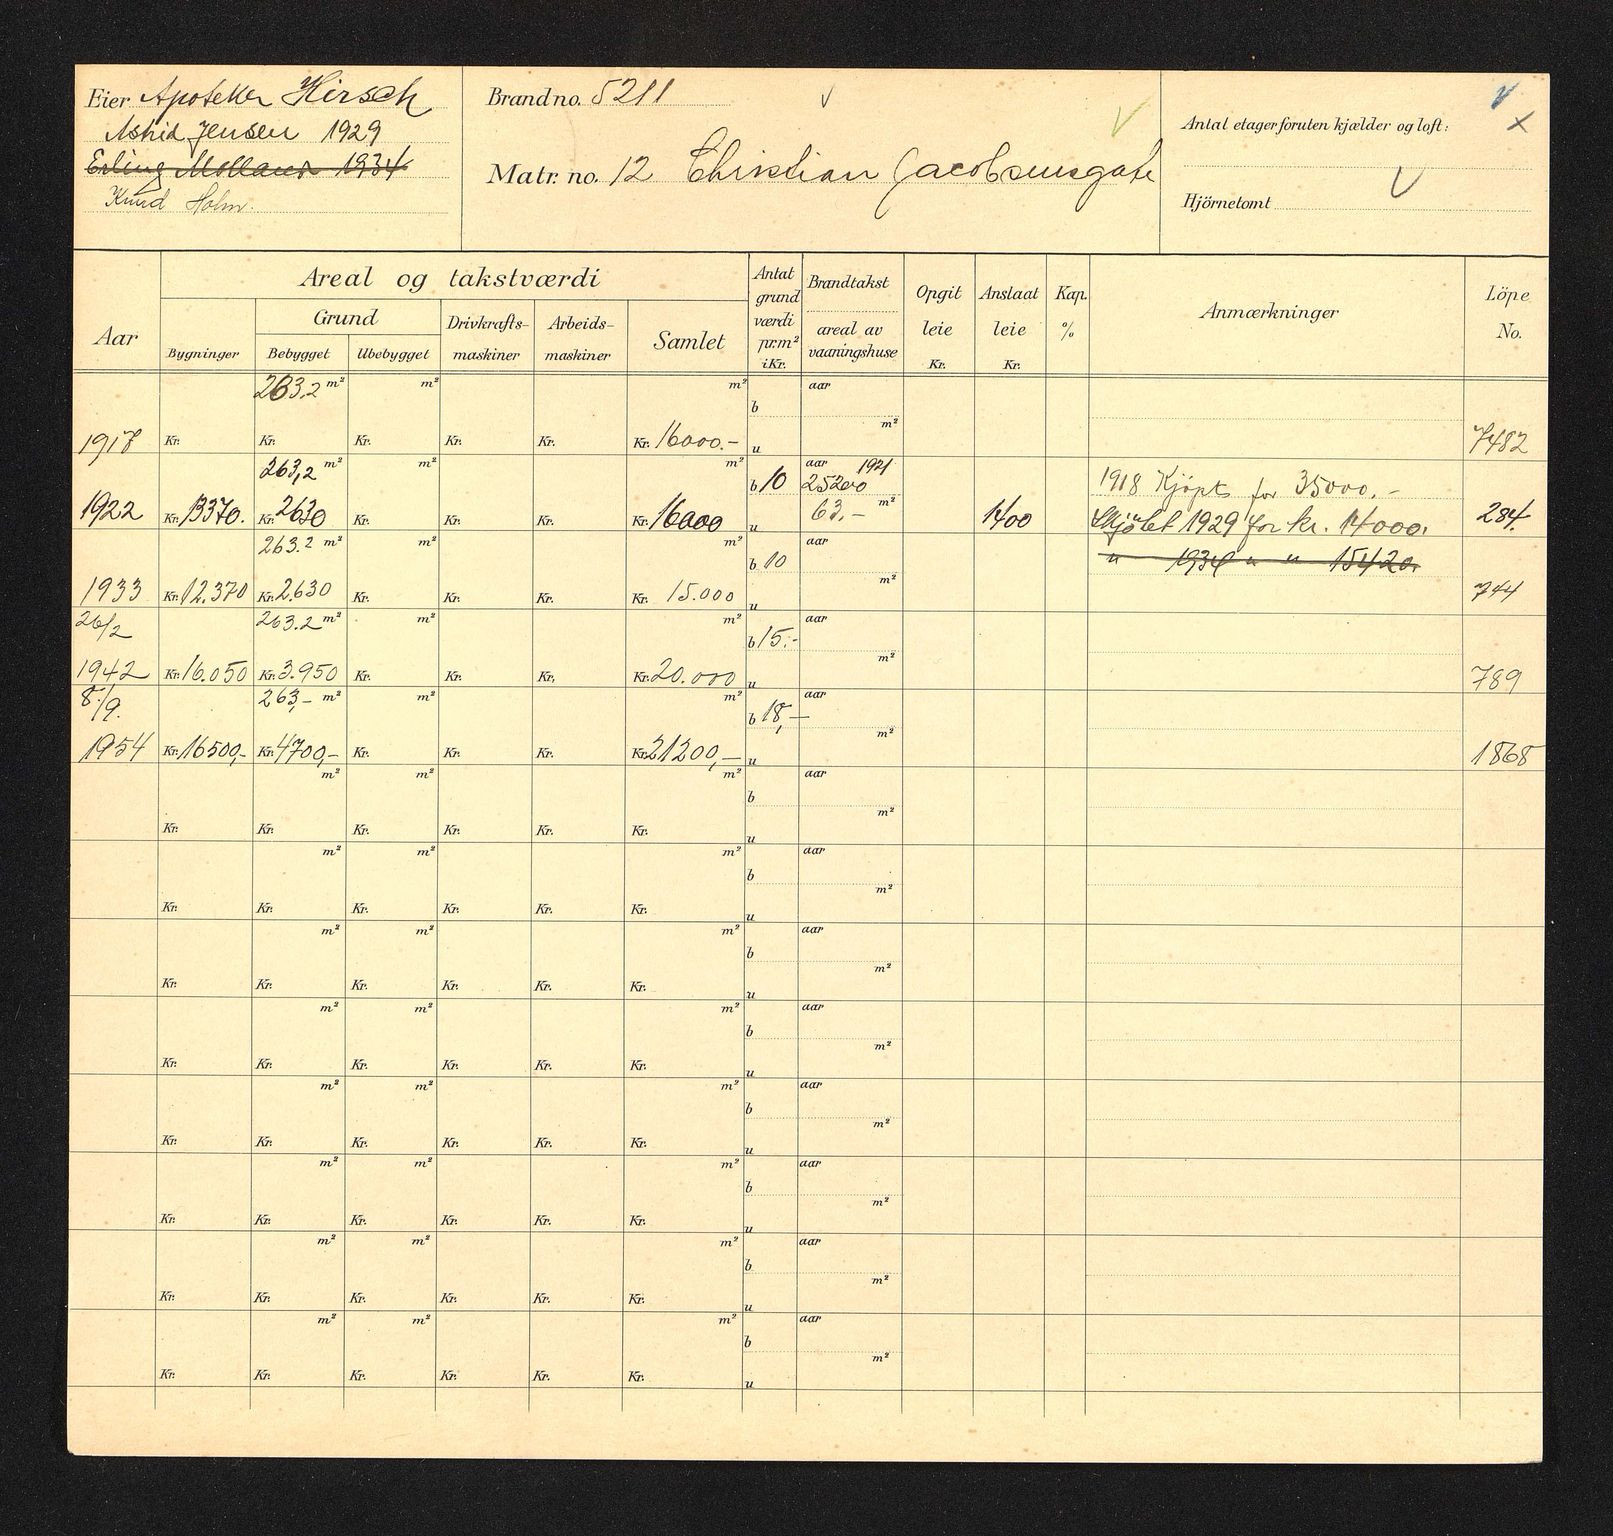 Eier Apoteker Hirsch
Astrid Jensen 1929
Erling Molland 1934
Knud Holm.
Brand no. 5211
Matr. no. 12 Christian Jacobsensgate
Antal etager foruten kjælder og loft:
Hjörnetomt
Aar
Areal og takstværdi
Grund
Bygninger
Bebygget
Ubebygget
Drivkrafts-
maskiner
Arbeids-
maskiner
Samlet
Antat
grund
værdi
pr.m²
i Kr.
Brandtakst
areal av
vaaningshuse
Opgit
leie
Kr.
Anslaat
leie
Kr.
Kap.
%
Anmærkninger
Löpe
No.
263.2 m² m² m² aar
b
m²
1917 Kr. Kr. Kr. Kr. Kr. Kr. 16000.- u 7482
263,2 m² m² m² b 10 aar 1921
25200
1918 Kjøpt for 35000.-
1922 Kr. 13370. Kr. 2630 Kr. Kr. Kr. Kr. 16000 u 63.- m² 1400 Skjøtet 1929 for kr. 14000. 284.
263.2 m² m² m² b 10 aar
" 1934 " " 15420.
m²
1933 Kr. 12.370 Kr. 2.630 Kr. Kr. Kr. Kr. 15.000 u 744
26/2 263.2 m² m² m² b 15.- aar
m²
1942 Kr. 16.050 Kr. 3.950 Kr. Kr. Kr. Kr. 20.000 u 789
8./9. 263,- m² m² m² b 18,- aar
m²
1954 Kr. 16500,- Kr. 4700,- Kr. Kr. Kr. Kr. 21200,- u 1868
m² m² m² aar
b
m²
Kr. Kr. Kr. Kr. Kr. Kr. u
m² m² m² aar
b
m²
Kr. Kr. Kr. Kr. Kr. Kr. u
m² m² m² aar
b
m²
Kr. Kr. Kr. Kr. Kr. Kr. u
m² m² m² aar
b
m²
Kr. Kr. Kr. Kr. Kr. Kr. u
m² m² m² aar
b
m²
Kr. Kr. Kr. Kr. Kr. Kr. u
m² m² m² aar
b
m²
Kr. Kr. Kr. Kr. Kr. Kr. u
m² m² m² aar
b
m²
Kr. Kr. Kr. Kr. Kr. Kr. u
m² m² m² aar
b
m²
Kr. Kr. Kr. Kr. Kr. Kr. u